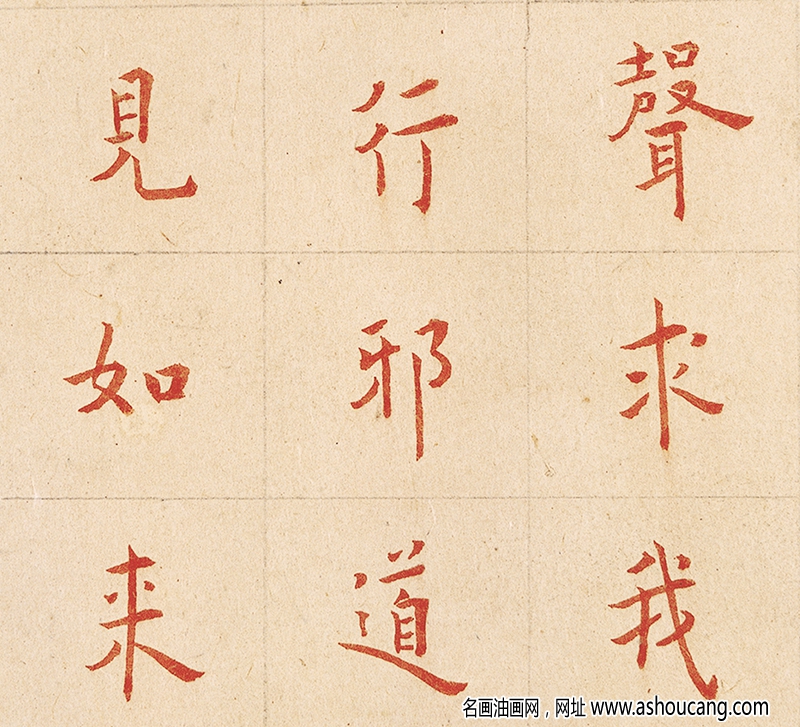 聲求我
行邪道
見如来
名画油画网，网址 www.ashoucang.com